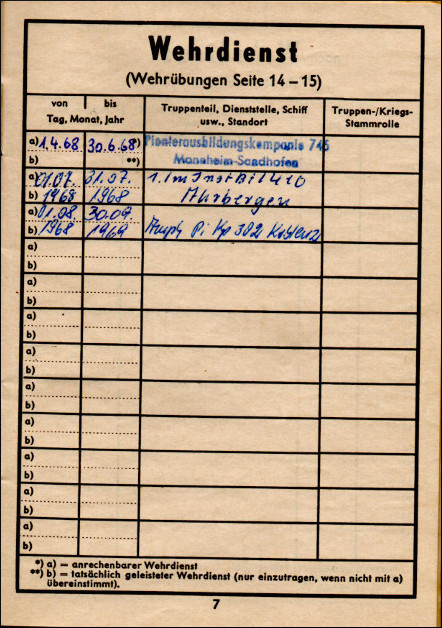 Wehrdienst
(Wehrübungen Seite 14 – 15)
von bis
Tag, Monat, Jahr
Truppenteil, Dienststelle, Schiff
usw., Standort
Truppen-/Kriegs-
Stammrolle
a) 1.4.68 30.6.68 *) Pionierausbildungskompanie 746
b) **) Mannheim-Sandhofen
a) 01.07. 31.07. 1. Im Inst Btl 410
b) 1968 1968
a) 01.08. 30.09.
b) 1968 1969 Amph Pi Kp 302 Koblenz
a)
b)
a)
b)
a)
b)
a)
b)
a)
b)
a)
b)
a)
b)
a)
b)
a)
b)
*) a) = anrechenbarer Wehrdienst
**) b) = tatsächlich geleisteter Wehrdienst (nur einzutragen, wenn nicht mit a)
übereinstimmt).
7